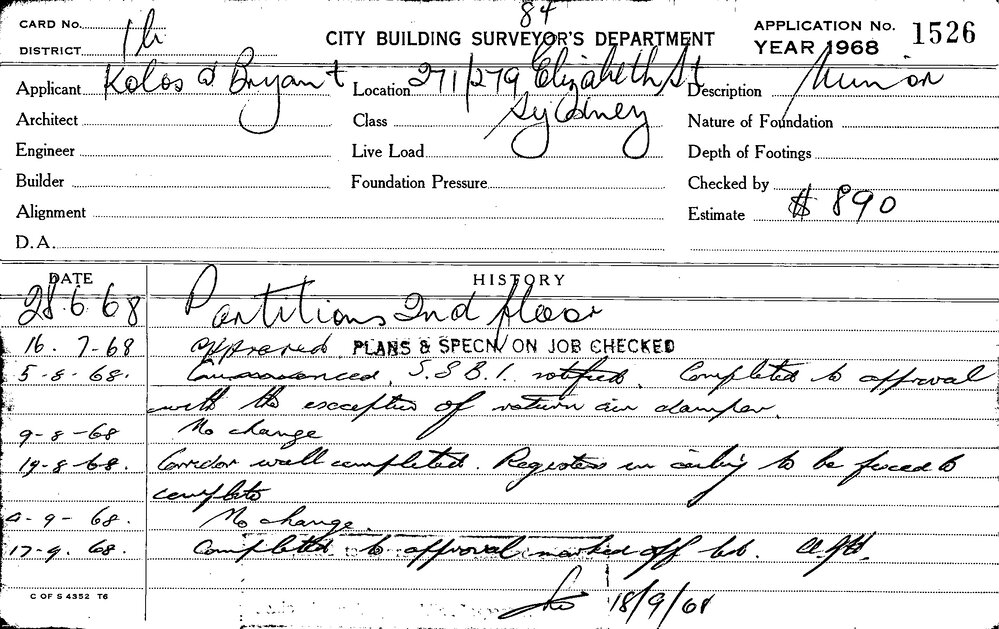 84
CARD No.
DISTRICT 1h
CITY BUILDING SURVEYOR'S DEPARTMENT
APPLICATION No. 1526
YEAR 1968
Applicant Kolos & Bryant Location 271/279 Elizabeth St Description Minor
Architect Class Sydney Nature of Foundation
Engineer Live Load Depth of Footings
Builder Foundation Pressure Checked by
Alignment Estimate $ 890
D.A.
DATE HISTORY
28.6.68 Partitions 2nd floor
16.7-68 approved PLANS & SPECN/ ON JOB CHECKED
5-8-68. notified. Completed to approval
with the exception of return air damper.
9-8-68 No change
19-8-68. Corridor wall completed. Registers in ceiling to be
complete
9-68. No change.
17-9.68. Completed to approval marked off
18/9/68
C OF S 4352 T6